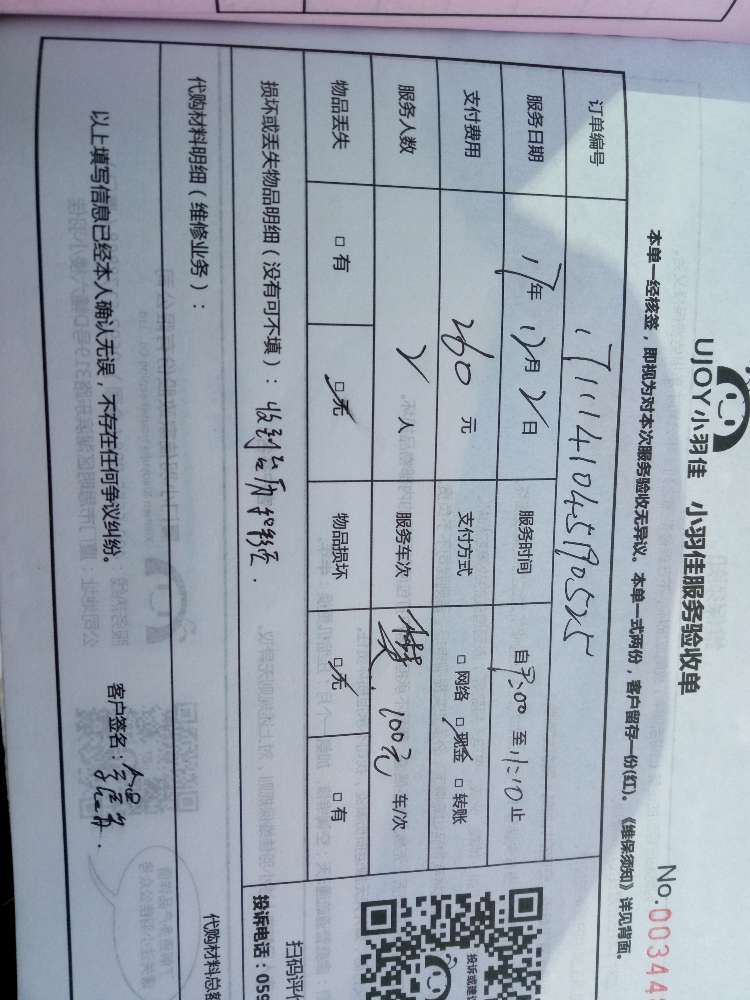 UJOY小羽佳 小羽佳服务验收单
No.00344
本单一经核签，即视为对本次服务验收无异议。本单一式两份，客户留存一份(红)。《维保须知》详见背面。
订单编号
服务日期 17年 12月 2日 服务时间 自 9:00 至 11:10 止
支付费用 260元 支付方式 □ 网络 □ 现金 □ 转账
服务人数 2人 服务车次 100元 车/次
物品丢失 □ 有 □ 无 物品损坏 □ 无 □ 有
损坏或丢失物品明细（没有可不填）：收到
代购材料明细（维修业务）：
代购材料总
以上填写信息已经本人确认无误，不存在任何争议纠纷。 客户签名：
扫码评
投诉电话：059
投诉或建议